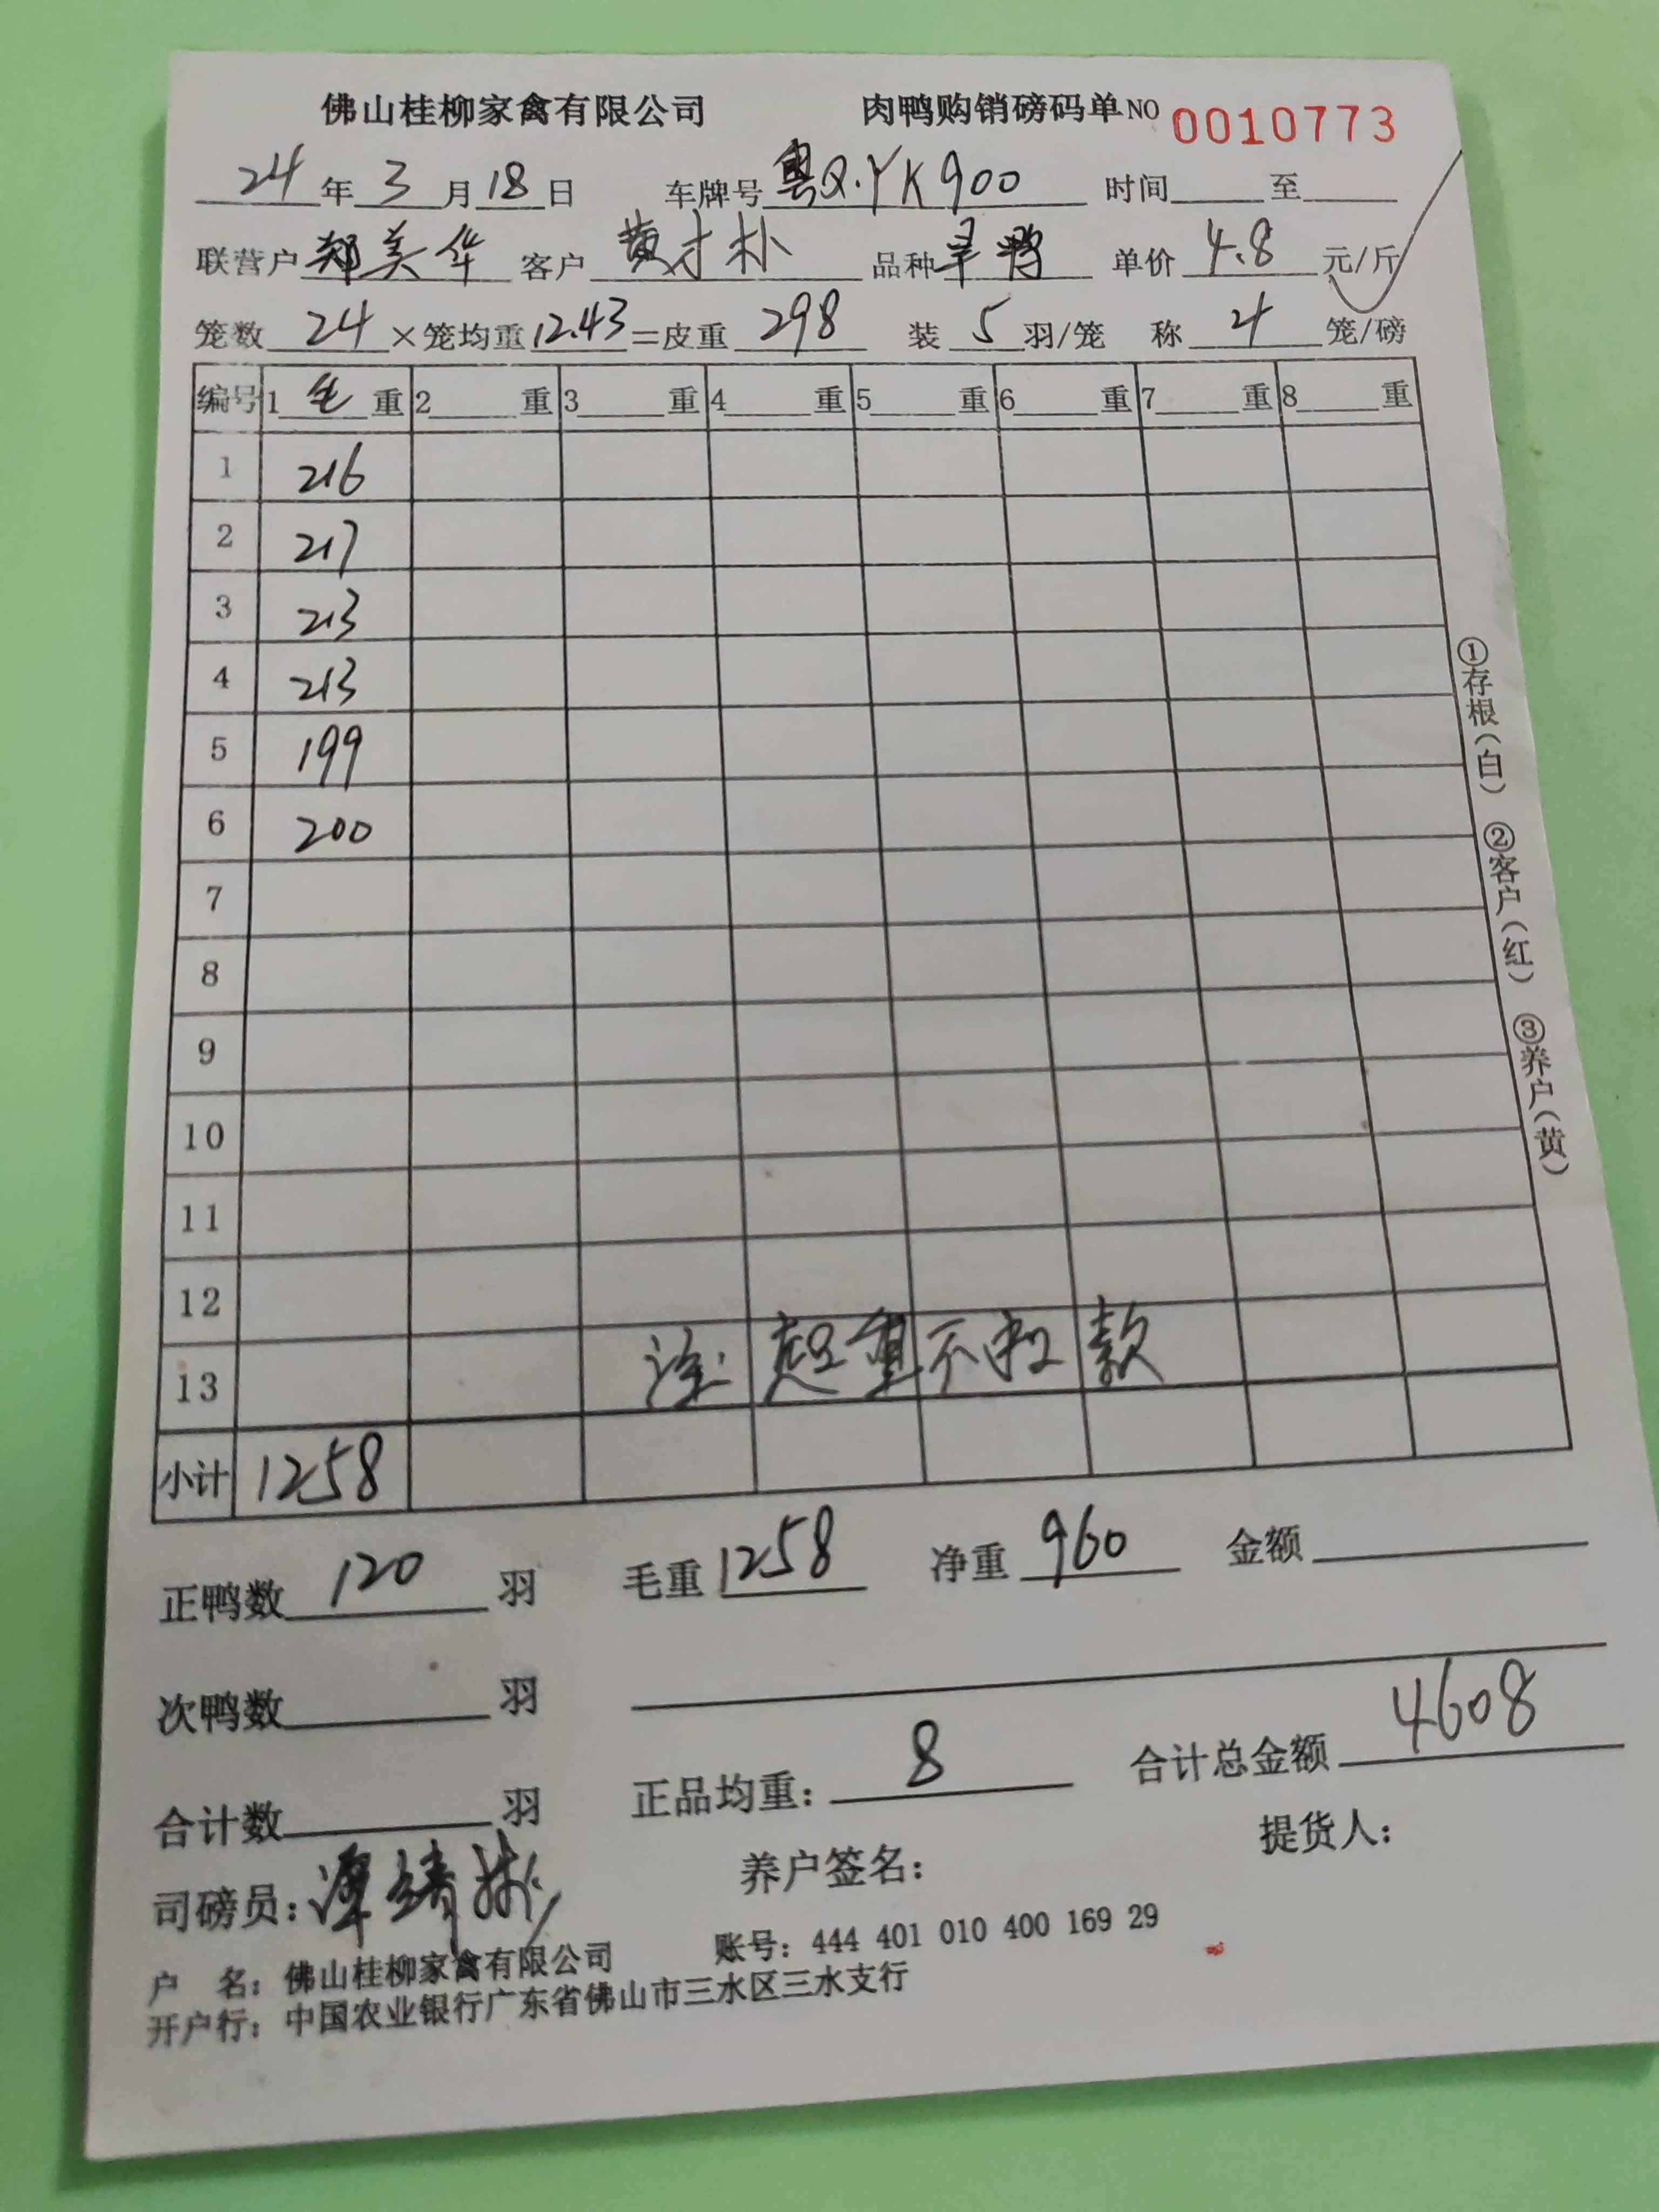 佛山桂柳家禽有限公司 肉鸭购销磅码单NO 0010773
24年3月18日 车牌号粤Q·YK900 时间 至
联营户郑美华 客户黄才朴 品种旱鸭 单价4.8元/斤
笼数24×笼均重12.43=皮重298 装5羽/笼 称4笼/磅
编号 1毛重 2重 3重 4重 5重 6重 7重 8重
1 216
2 217
3 213
4 213
5 199
6 200
7
8
9
10
11
12
13 注:超重不扣款
小计 1258
正鸭数120羽 毛重1258 净重960 金额
次鸭数 羽
合计数 羽 正品均重:8 合计总金额4608
司磅员:谭靖彬 养户签名: 提货人:
户 名:佛山桂柳家禽有限公司 账号:444 401 010 400 169 29
开户行:中国农业银行广东省佛山市三水区三水支行
①存根(白) ②客户(红) ③养户(黄)